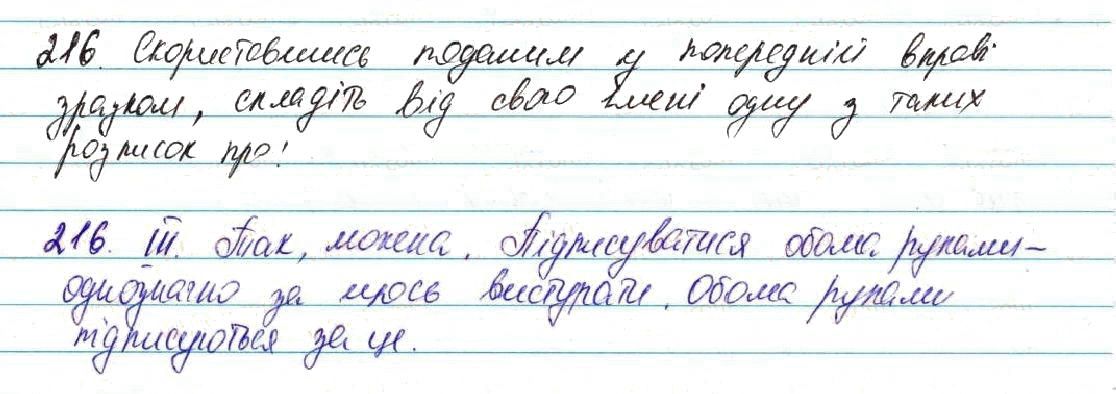 216. Скориставшись поданим у попередній вправі
зразком, складіть від свого імені одну з таких
розписок про:
216. III. Так, можна. Підписуватися обома руками –
однозначно за щось виступати. Обома руками
підписуються за це.